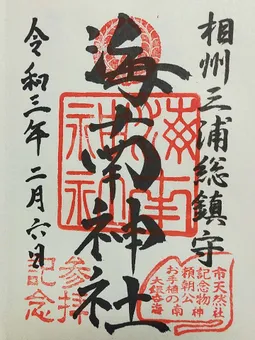 相州三浦総鎮守
海南神社
令和三年二月六日
海南神社
参拝記念
市天然
記念物
頼朝公
お手植の
大銀杏
海南神社